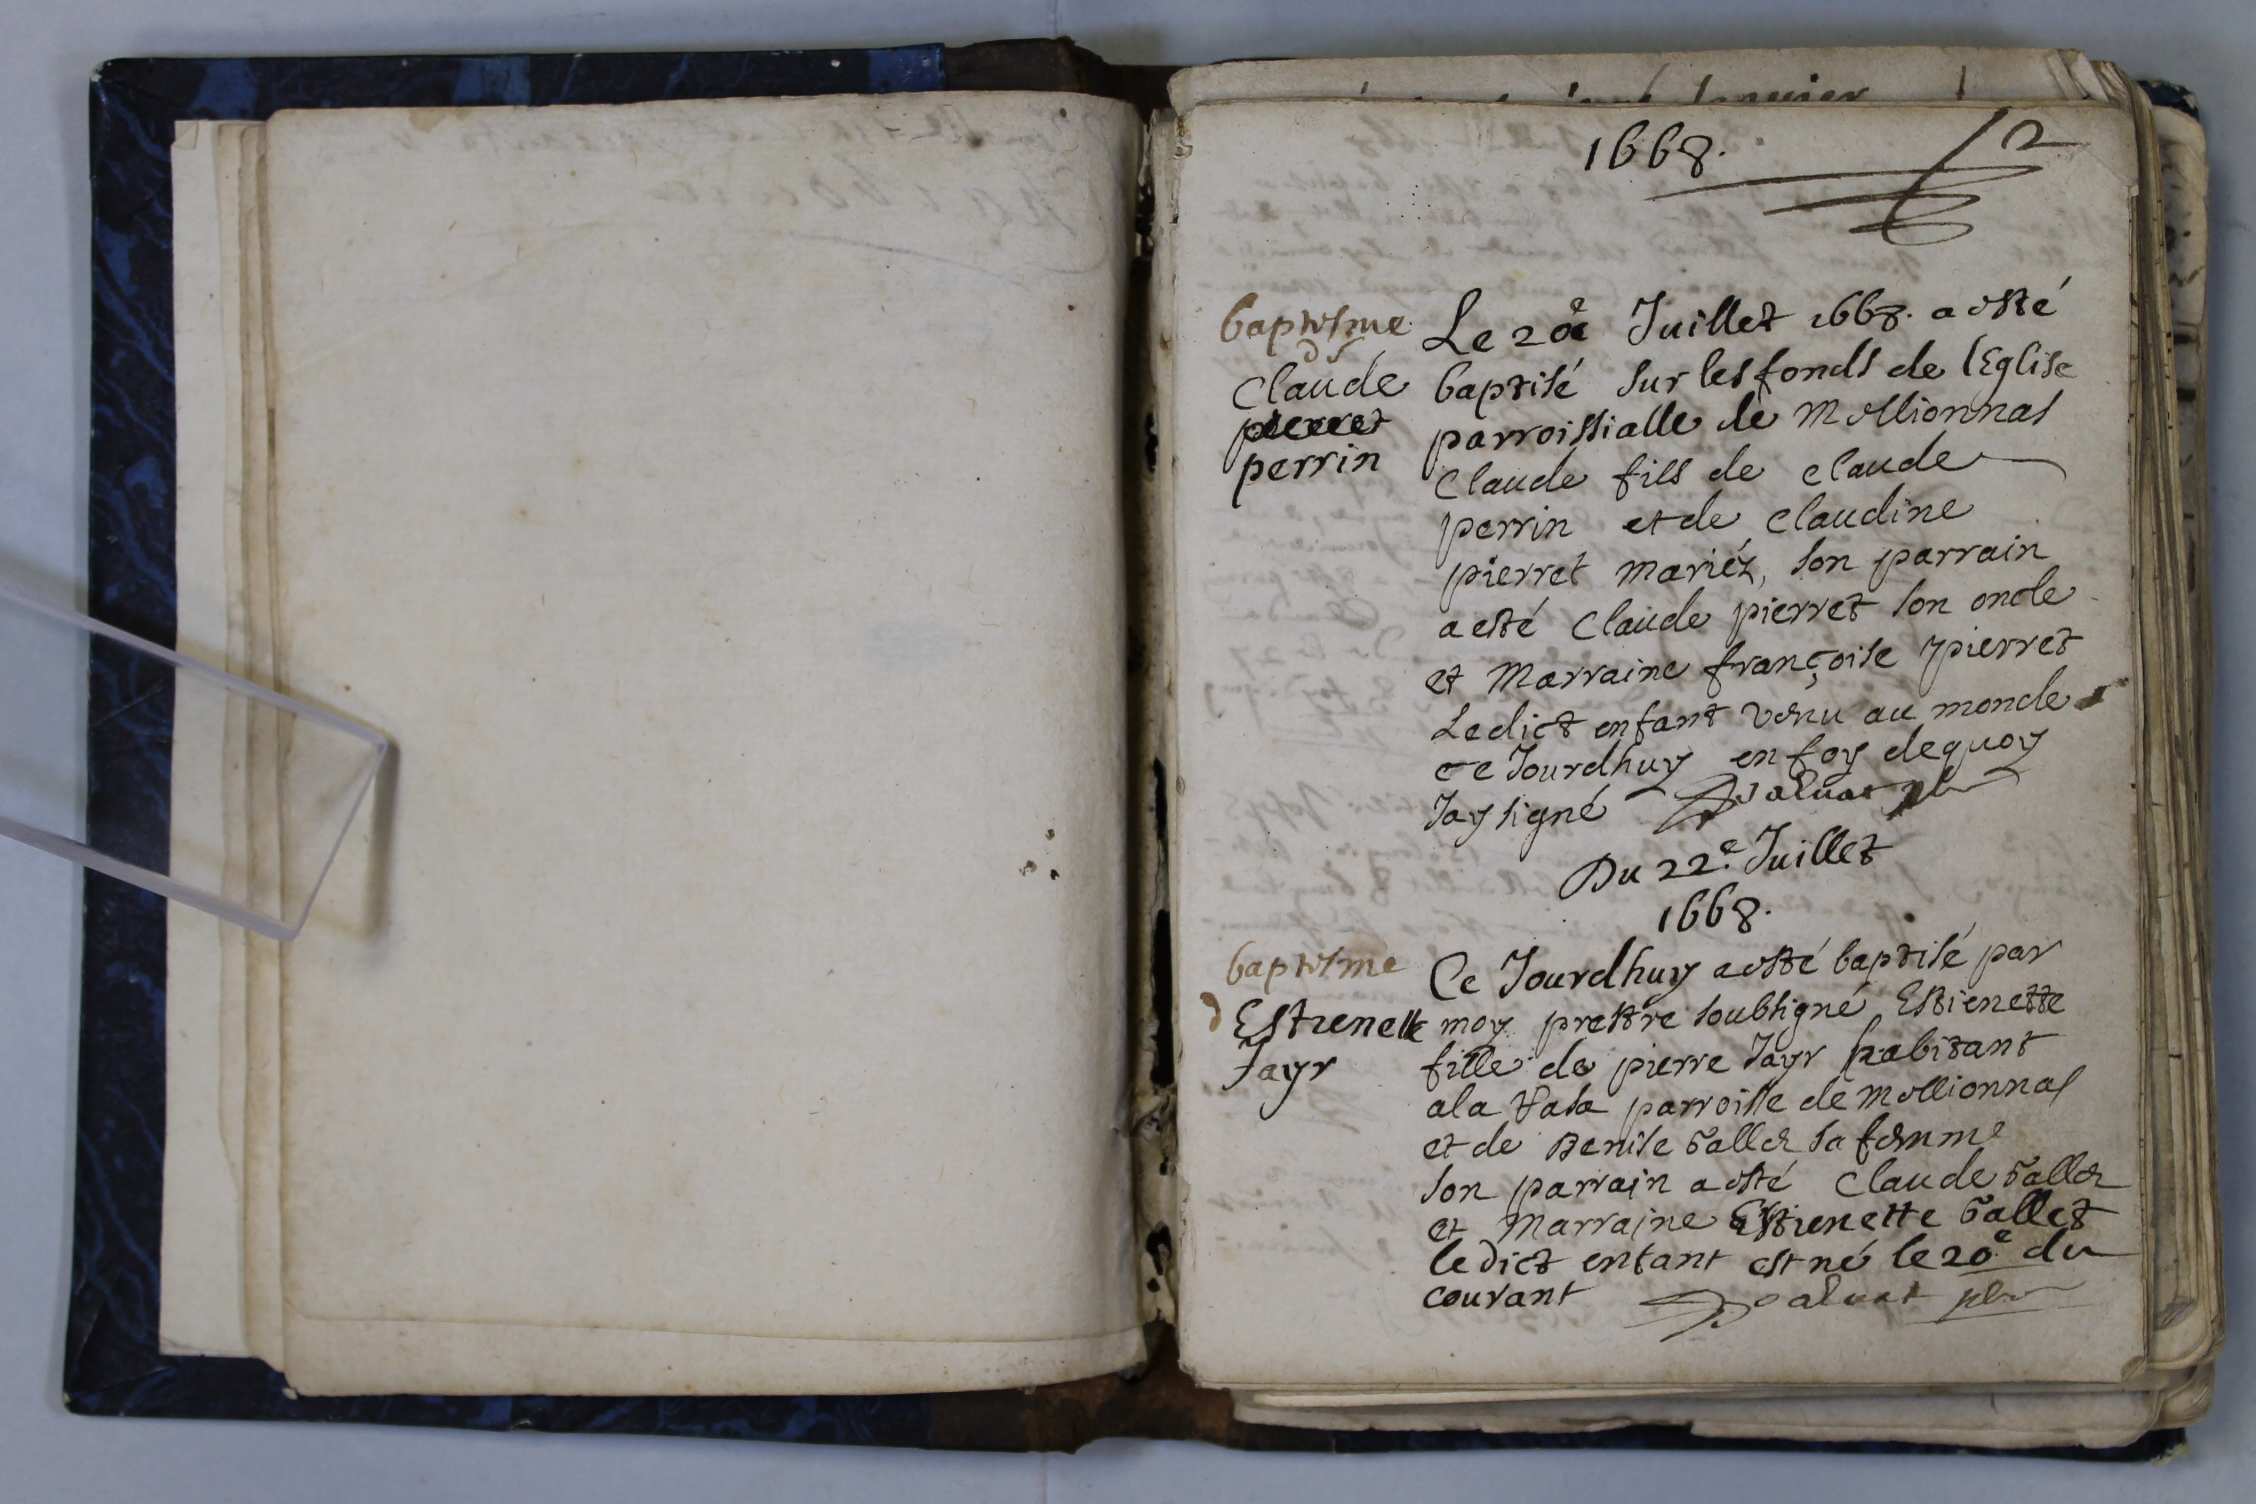 1668.
2
baptesme
de
Claude
pierret
perrin
Le 20e Juillet 1668. a esté
baptisé sur les fonds de lEglise
parroissialle de Mellionnas
Claude fils de claude
perrin et de claudine
pierret mariéz, son parrain
a esté Claude pierret son oncle
et Marraine françoise pierret
Ledict enfant venu au monde
ce Jourdhuy en foy dequoy
Jay signé
Du 22e. Juillet
1668.
baptesme
d
Estienette
Jayr
Ce Jourdhuy a esté baptisé par
moy prestre soubsigné Estienette
fille de pierre Jayr habitant
a la parroisse de Mellionnas
et de Denise sa femme
son parrain a esté Claude
et Marraine Estienette
ledict enfant est né le 20e du
courant